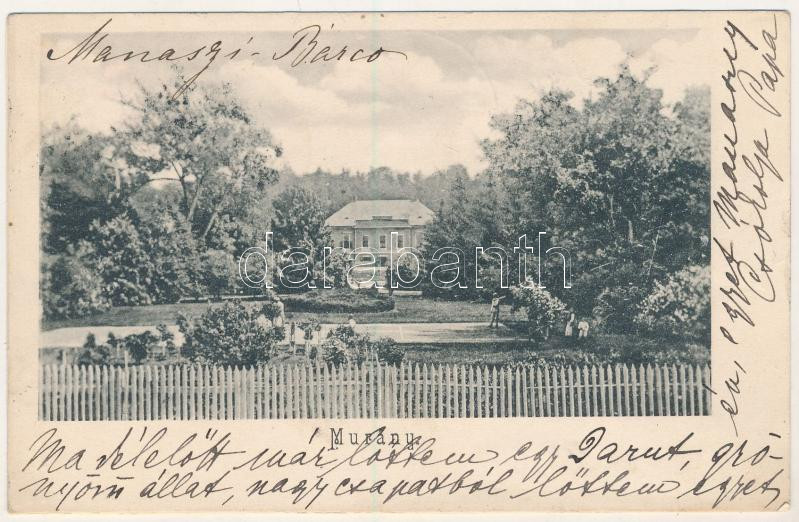 Manaszi - Barco
darabanth
Murány.
Ma délelőtt már lőttem egy Darut, gró-
nyörü állat, nagy csapatból lőttem egyet
én, egyet Manassy
Csókolja Papa